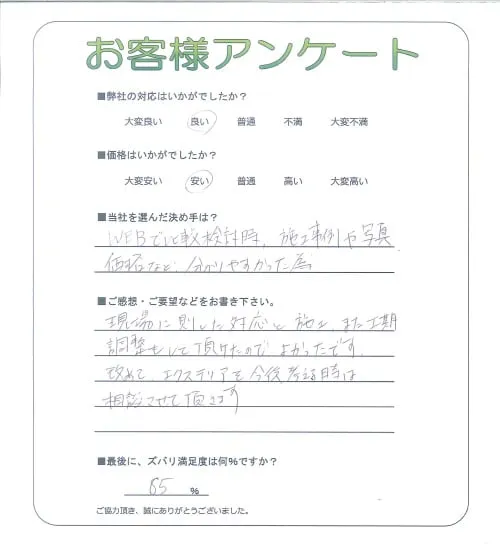 お客様アンケート
■弊社の対応はいかがでしたか？
大変良い 良い 普通 不満 大変不満
■価格はいかがでしたか？
大変安い 安い 普通 高い 大変高い
■当社を選んだ決め手は？
WEBで比較検討時、施工事例や写真
価格など、分かりやすかった為
■ご感想・ご要望などをお書き下さい。
現場に則した対応と施工、また工期
調整もして頂けたのでよかったです。
改めて、エクステリアを今後考える時は
相談させて頂きます
■最後に、ズバリ満足度は何%ですか？
85 %
ご協力頂き、誠にありがとうございました。